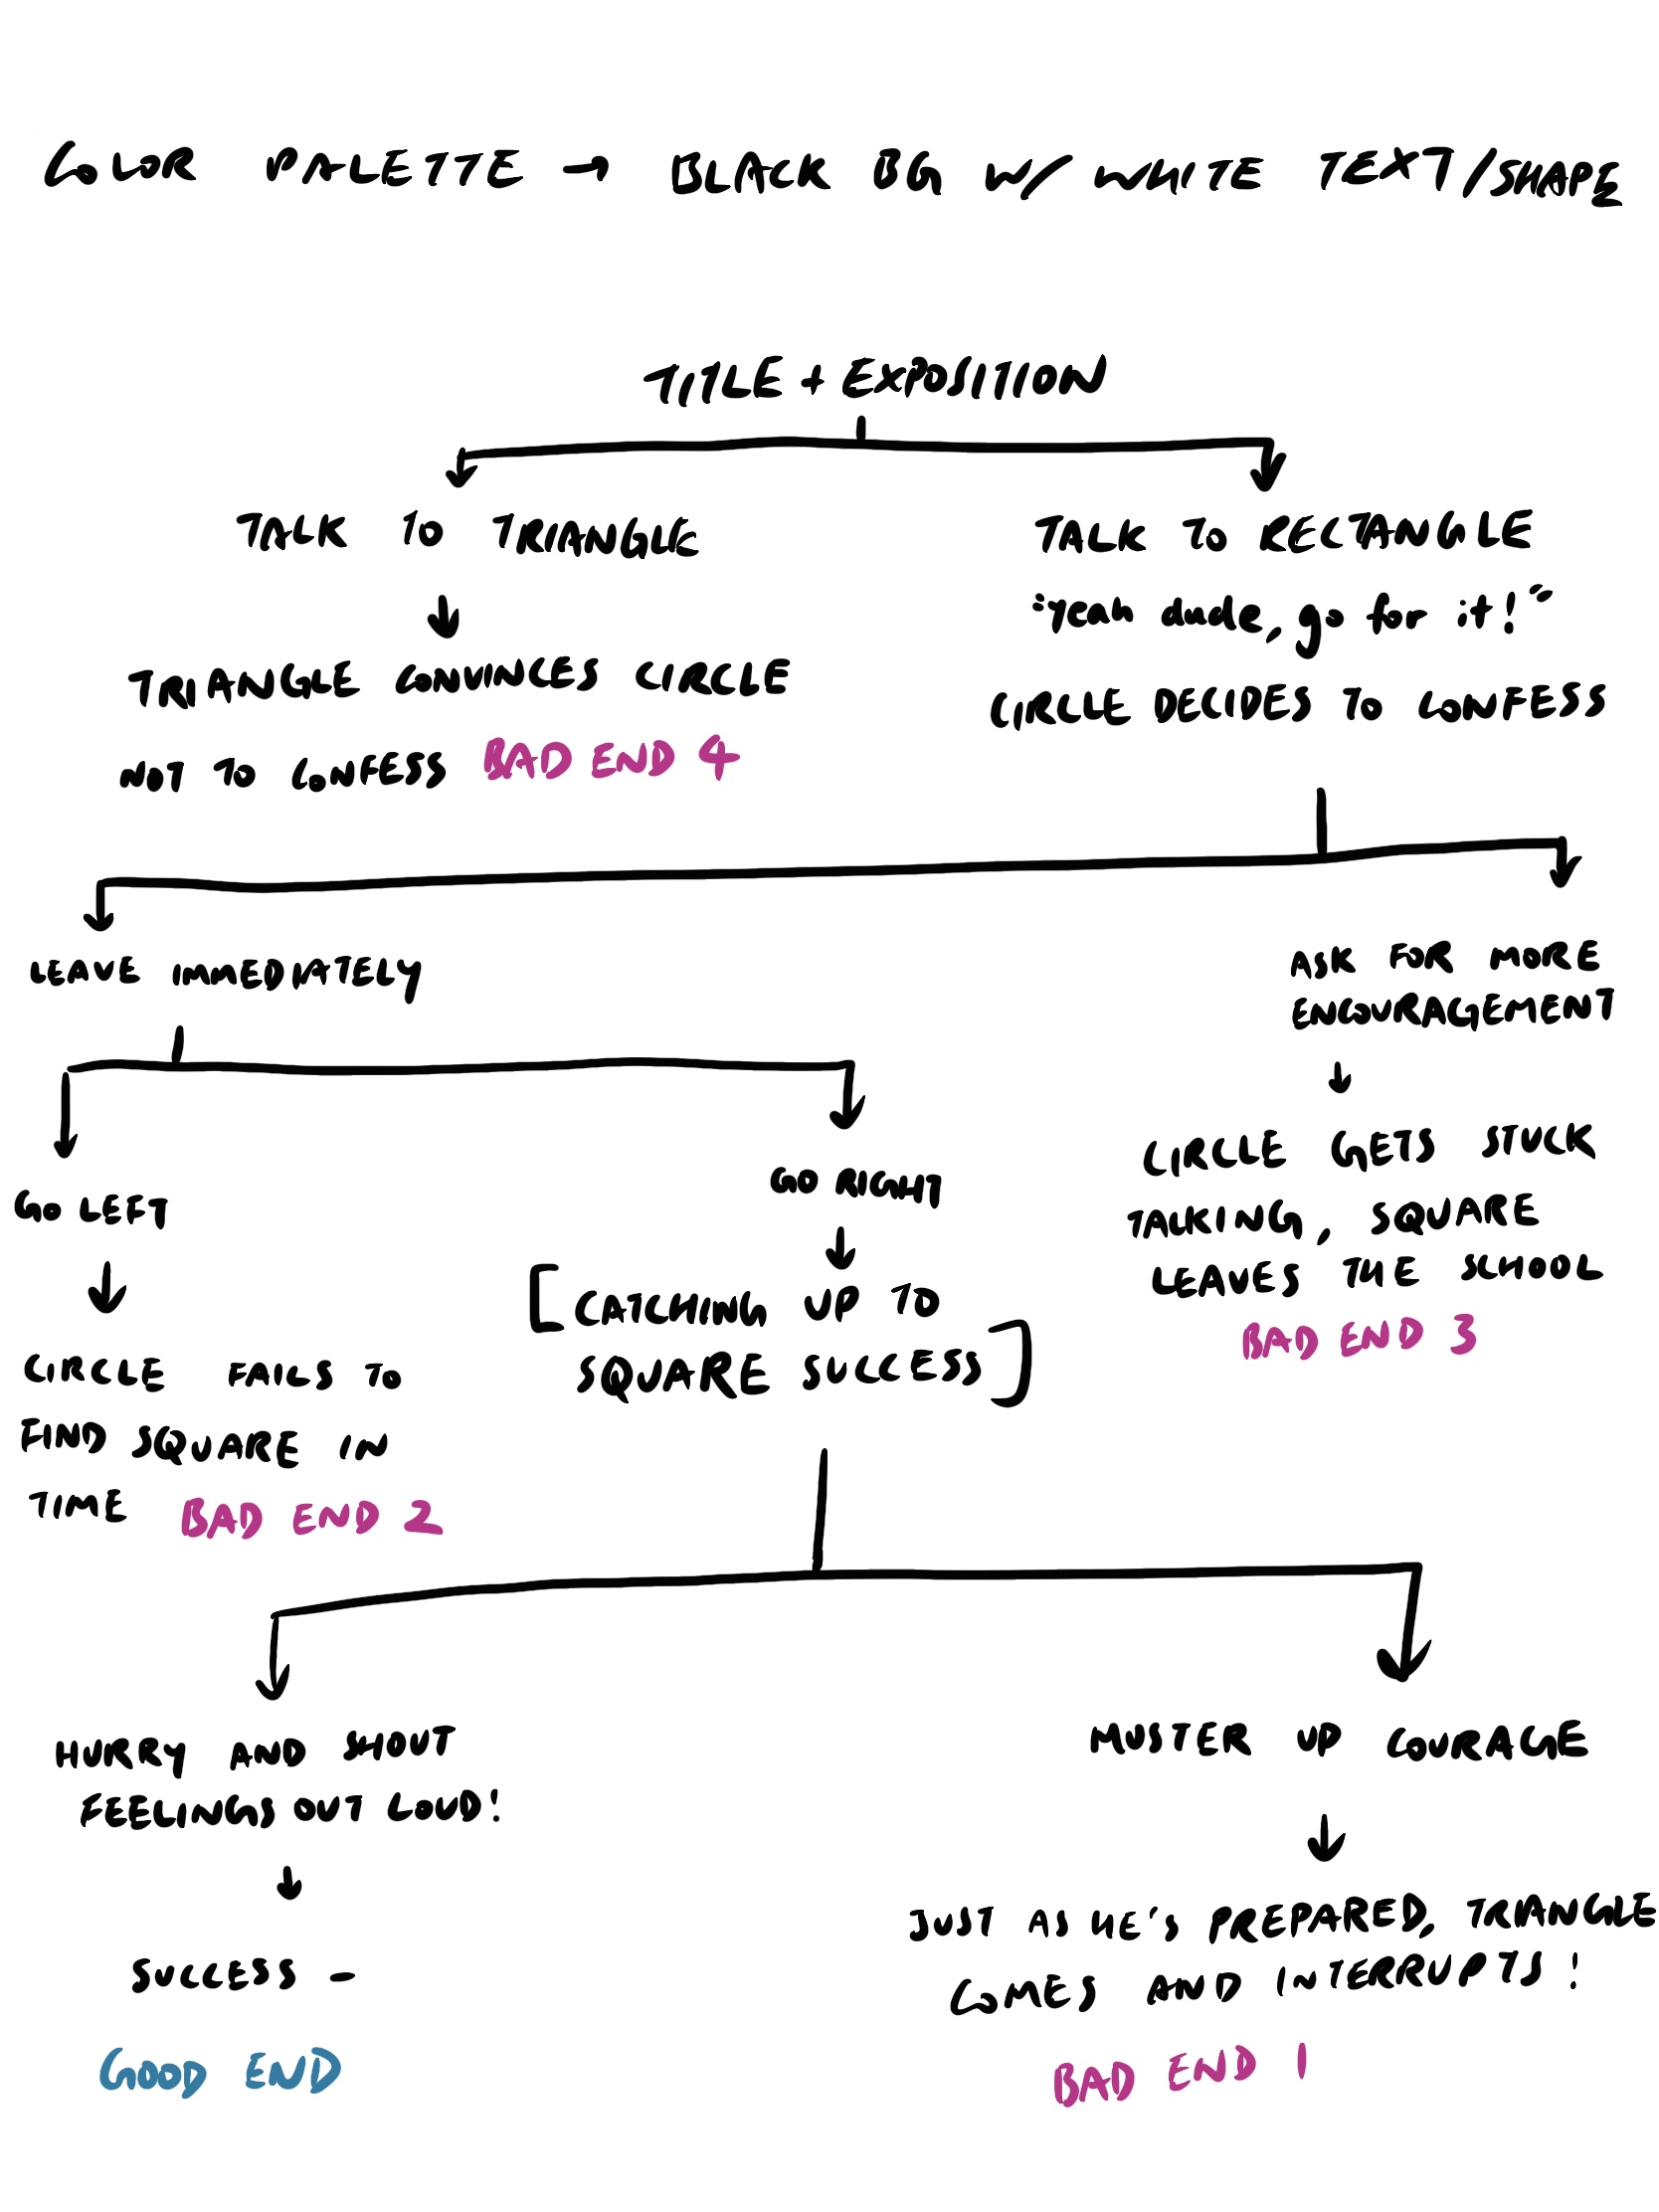 COLOR PALETTE → BLACK BG W/ WHITE TEXT/SHAPE
TITLE + EXPOSITION
TALK TO TRIANGLE
TRIANGLE CONVINCES CIRCLE
NOT TO CONFESS BAD END 4
TALK TO RECTANGLE
"yeah dude, go for it!"
CIRCLE DECIDES TO CONFESS
LEAVE IMMEDIATELY
ASK FOR MORE
ENCOURAGEMENT
CIRCLE GETS STUCK
TALKING, SQUARE
LEAVES THE SCHOOL
BAD END 3
GO LEFT
CIRCLE FAILS TO
FIND SQUARE IN
TIME BAD END 2
GO RIGHT
[CATCHING UP TO
SQUARE SUCCESS]
HURRY AND SHOUT
FEELINGS OUT LOUD!
SUCCESS -
GOOD END
MUSTER UP COURAGE
JUST AS HE'S PREPARED, TRIANGLE
COMES AND INTERRUPTS!
BAD END 1